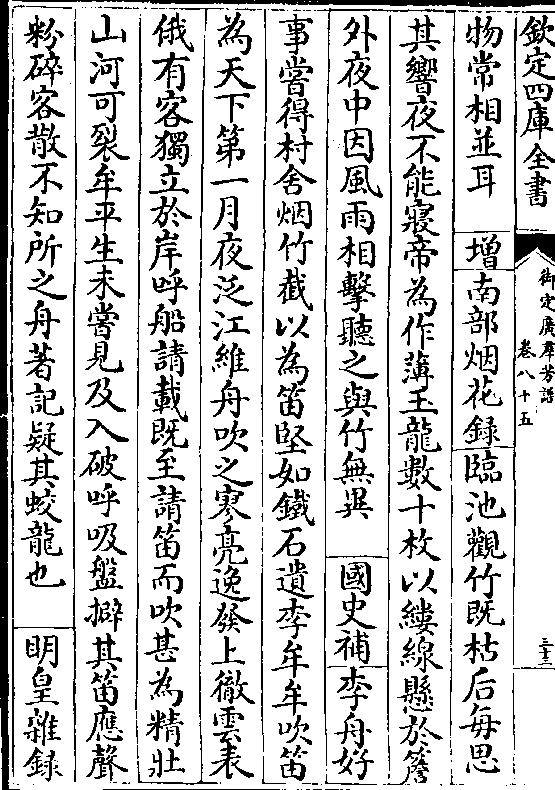 欽定四庫全書
御定廣羣芳譜
卷八十五
三十三
物常相並耳 增南部烟花録臨池觀竹既枯后每思
其響夜不能寢帝為作薄玉龍數十枚以縷線懸於簷
外夜中因風雨相擊聽之與竹無異 國史補李舟好
事嘗得村舍烟竹截以為笛堅如鐵石遺李牟牟吹笛
為天下第一月夜泛江維舟吹之寥亮逸發上徹雲表
俄有客獨立於岸呼船請載既至請笛而吹甚為精壯
山河可裂牟平生未嘗見及入破呼吸盤擗其笛應聲
粉碎客散不知所之舟著記疑其蛟龍也 明皇雜録